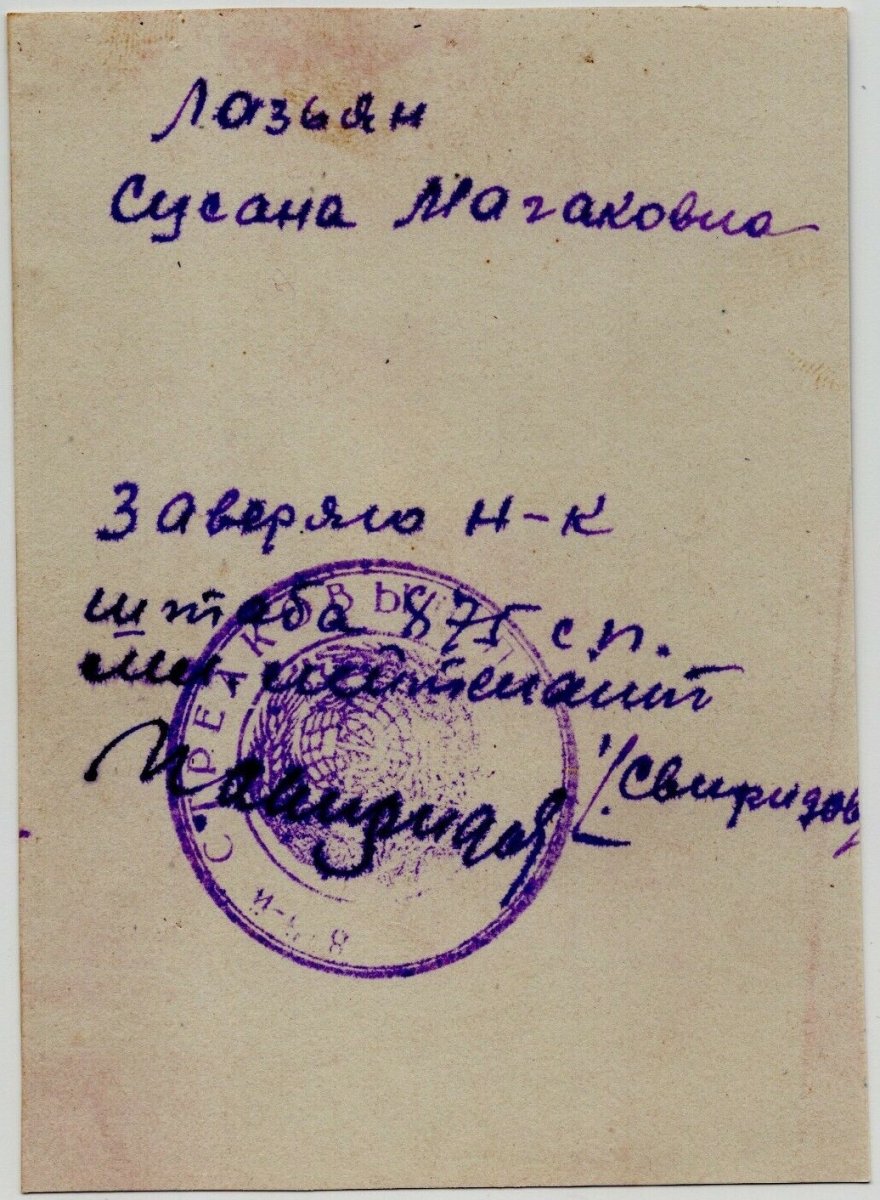 Лазьян
Сусана Магаковна
Заверяю н-к
штаба 875 сп.
мл лейтенант
/Свиридов
СТРЕЛКОВЫЙ